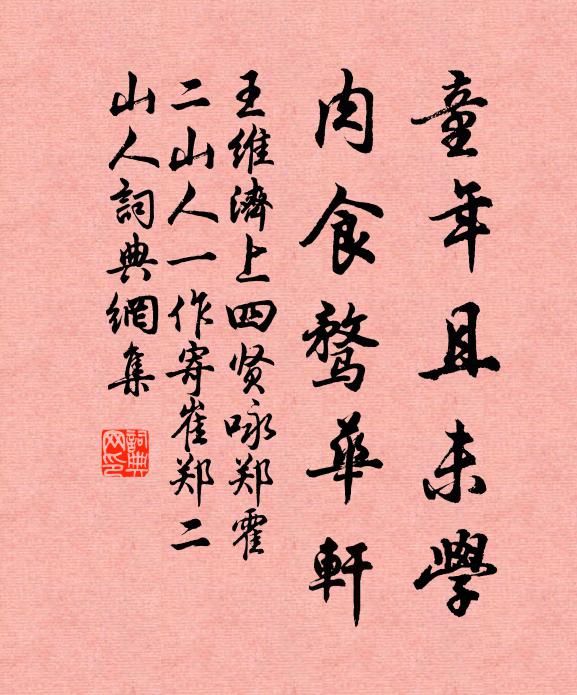 童年且未學
肉食鶩華軒
王维濟上四贤咏郑霍
二山人一作寄崔郑二
山人詞典網集
詞典网印